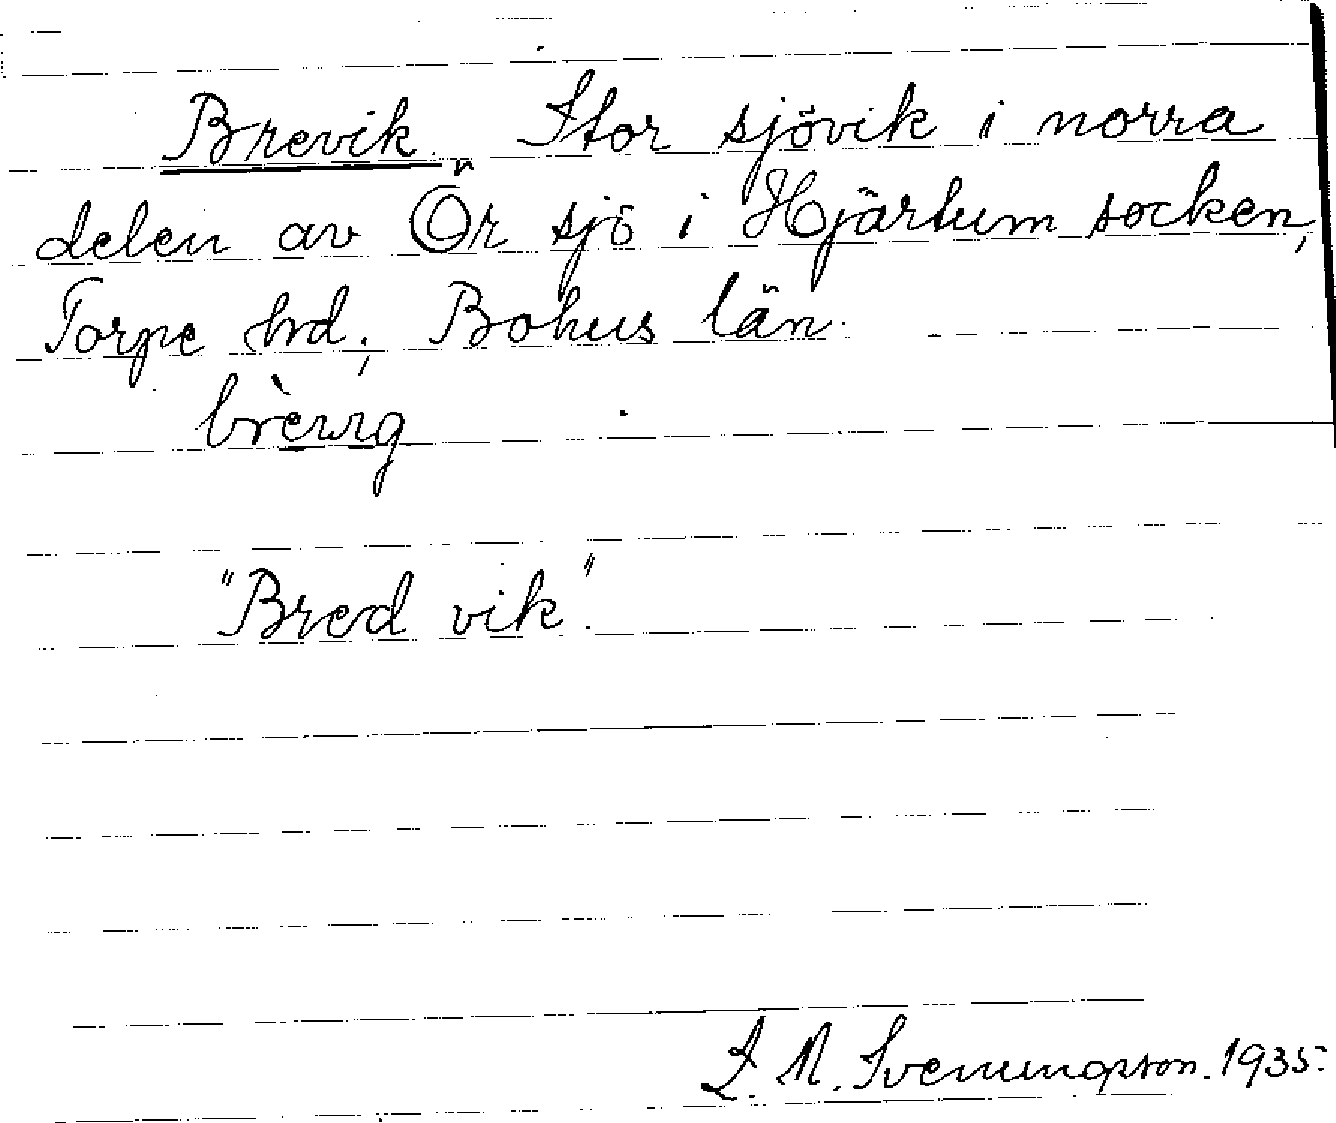 Brevik. Stor sjövik i norra
delen av Ör sjö i Hjärtum socken,
Torpe hrd, Bohus län.
brèvıg
"Bred vik".
J. M. Svenningson. 1935.